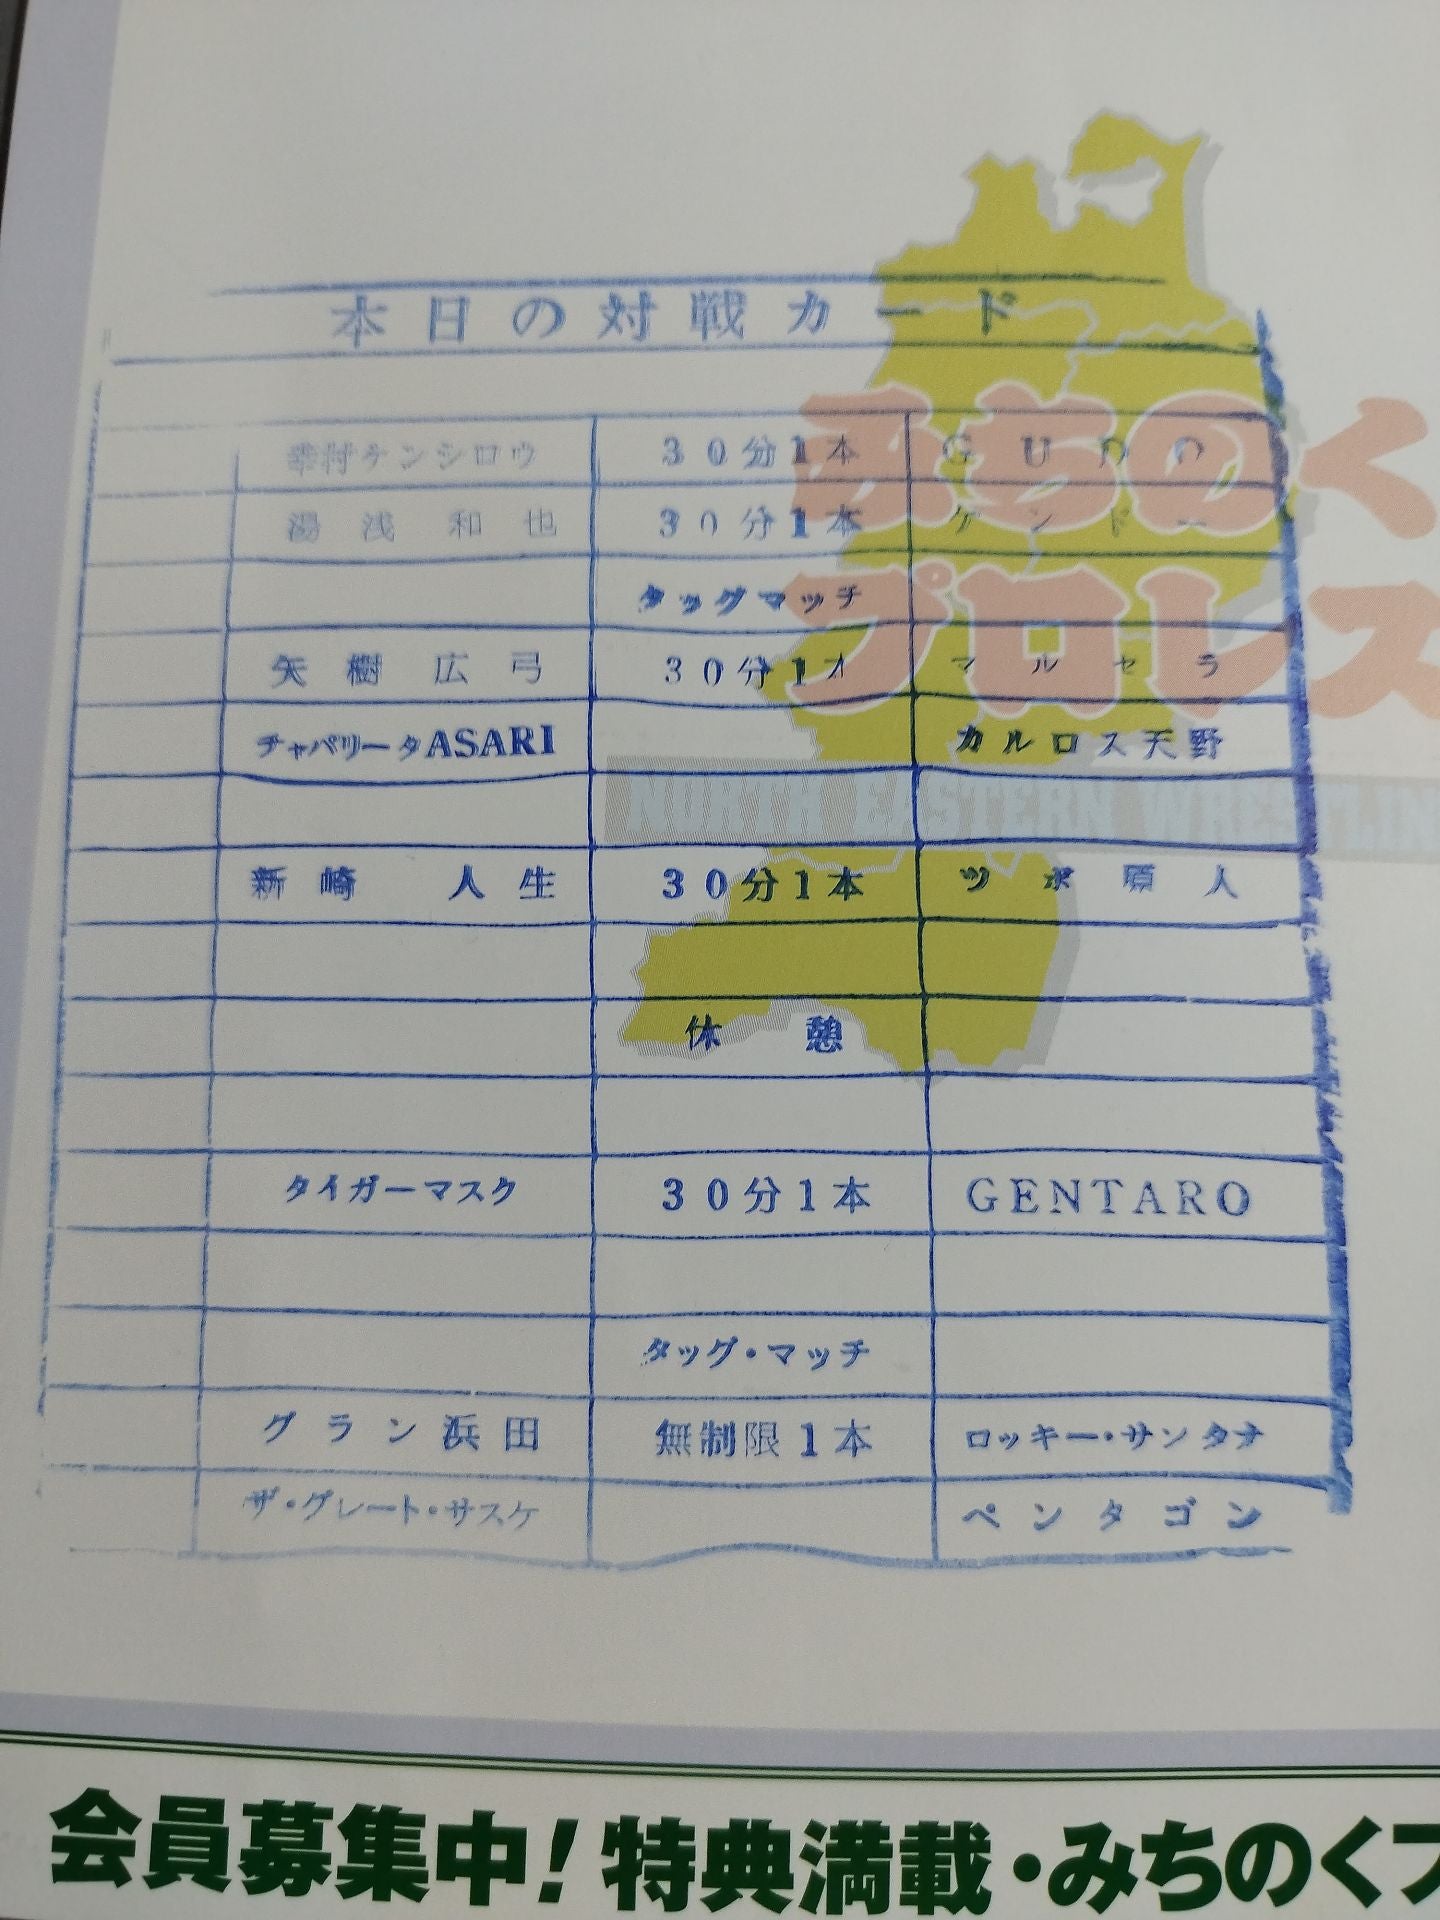 本日の対戦カード
幸村ケンシロウ 30分1本 GUDO
湯浅和也 30分1本 ケンドー
タッグマッチ
矢樹広弓 30分1本 マルセラ
チャパリータASARI カルロス天野
新崎人生 30分1本 ツボ原人
休憩
タイガーマスク 30分1本 GENTARO
タッグ・マッチ
グラン浜田 無制限1本 ロッキー・サンタナ
ザ・グレート・サスケ ペンタゴン
みちのく
プロレス
NORTH EASTERN WRESTLIN
会員募集中!特典満載・みちのくプ